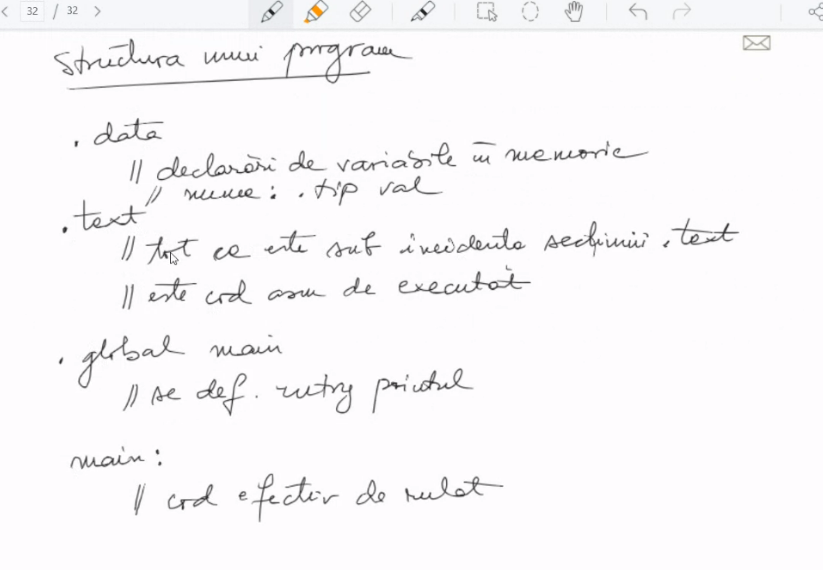 32 / 32
Structura unui program
. data
// declarări de variabile în memorie
// nume : . tip val
. text
// tot ce este sub incidenta secțiunii . text
// este cod asm de executat
. global main
// se def. entry pointul
main :
// cod efectiv de rulat